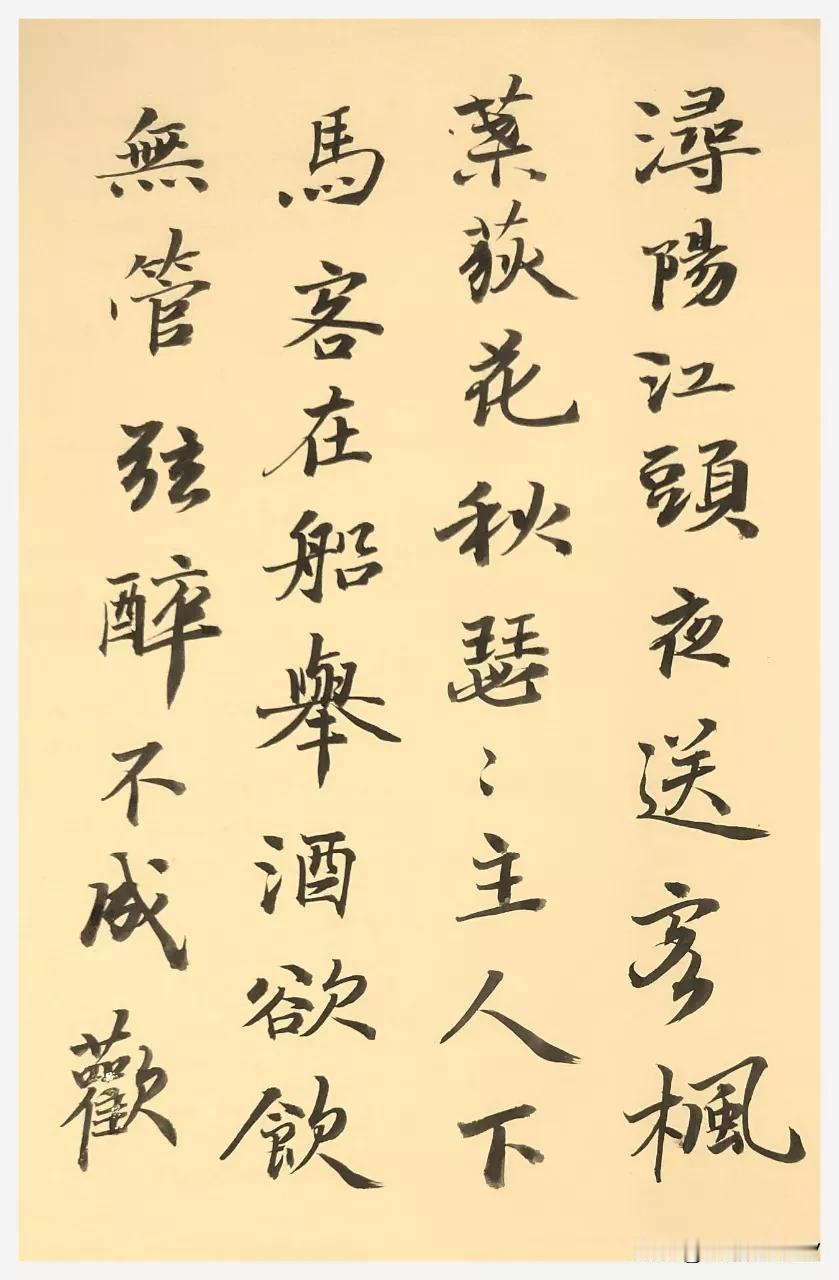 潯陽江頭夜送客楓
葉荻花秋瑟〻主人下
馬客在船舉酒欲飲
無管弦醉不成歡